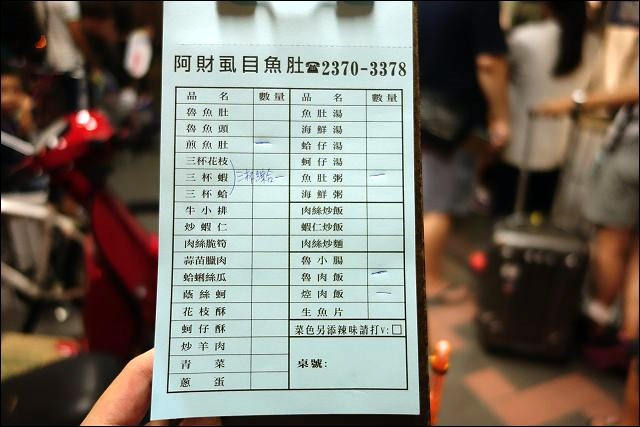 阿財虱目魚肚☎2370-3378
品名 數量 品名 數量
魯魚肚 魚肚湯
魯魚頭 海鮮湯
煎魚肚 一 蛤仔湯
三杯花枝 蚵仔湯
三杯蝦 三杯綜合一 魚肚粥 一
三杯蛤 海鮮粥
牛小排 肉絲炒飯
炒蝦仁 蝦仁炒飯
肉絲脆筍 肉絲炒麵
蒜苗臘肉 魯小腸
蛤蜊絲瓜 魯肉飯 一
蔭絲蚵 焢肉飯 一
花枝酥 生魚片
蚵仔酥 菜色另添辣味請打V:□
炒羊肉 桌號:
青菜
蔥蛋